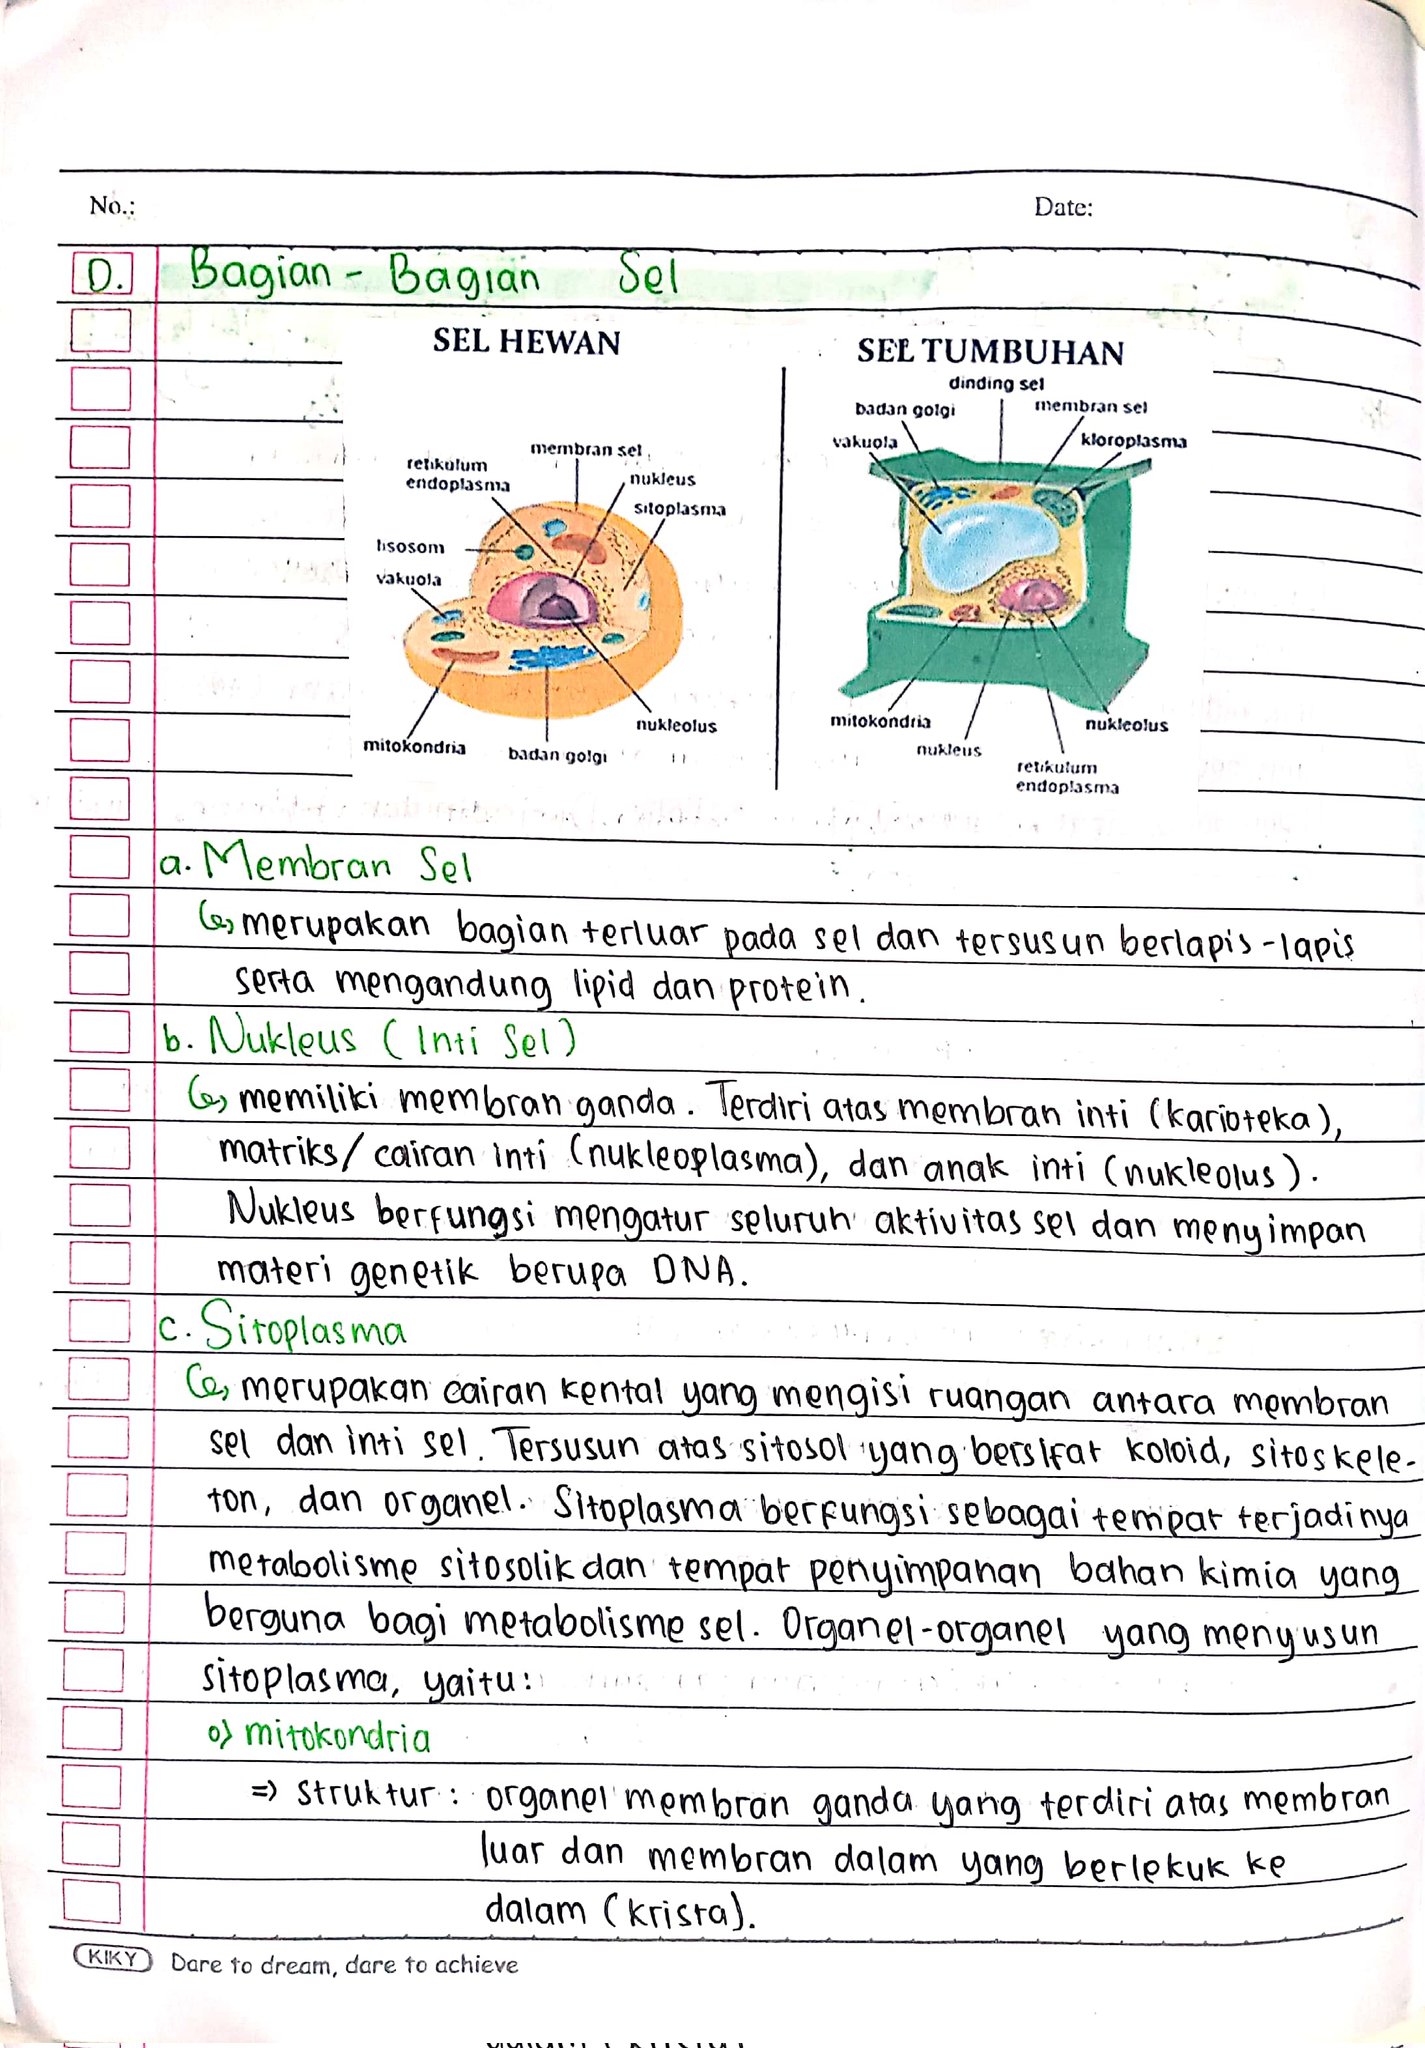 No.:
Date:
D. Bagian - Bagian Sel
SEL HEWAN
membran sel
retikulum endoplasma
nukleus
sitoplasma
lisosom
vakuola
mitokondria
badan golgi
nukleolus
SEL TUMBUHAN
dinding sel
badan golgi
membran sel
vakuola
kloroplasma
mitokondria
nukleus
retikulum endoplasma
nukleolus
a. Membran Sel
merupakan bagian terluar pada sel dan tersusun berlapis-lapis
serta mengandung lipid dan protein.
b. Nukleus (Inti Sel)
memiliki membran ganda. Terdiri atas membran inti (karioteka),
matriks/ cairan inti (nukleoplasma), dan anak inti (nukleolus).
Nukleus berfungsi mengatur seluruh aktivitas sel dan menyimpan
materi genetik berupa DNA.
c. Sitoplasma
merupakan cairan kental yang mengisi ruangan antara membran
sel dan inti sel. Tersusun atas sitosol yang bersifat koloid, sitoskele-
ton, dan organel. Sitoplasma berfungsi sebagai tempat terjadinya
metabolisme sitosolik dan tempat penyimpanan bahan kimia yang
berguna bagi metabolisme sel. Organel-organel yang menyusun
sitoplasma, yaitu:
o) mitokondria
=> struktur : organel membran ganda yang terdiri atas membran
luar dan membran dalam yang berlekuk ke
dalam (krista).
KIKY Dare to dream, dare to achieve